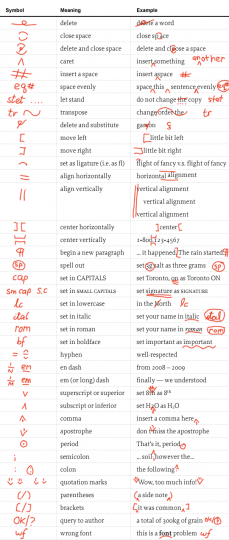 Symbol Meaning Example
delete delete a word
close space close space
delete and close space delete and close space
caret insert something another
# insert a space insert a space #
eq# space evenly space this sentence evenly eq#
stet .... let stand do not change the copy stet
tr transpose change order the tr
delete and substitute
[ move left [ little bit left
] move right ] little bit right
set as ligature (i.e. as fl) flight of fancy v.s. flight of fancy
= align horizontally horizontal alignment
|| align vertically || vertical alignment
vertical alignment
vertical alignment
] [ center horizontally ] center [
center vertically 1-800 123-4567
¶ begin a new paragraph ... it happened. The rain started ¶
sp spell out set 3g salt as three grams sp
cap set in CAPITALS set Toronto, on as Toronto ON
sm cap s.c set in SMALL CAPITALS set signature as SIGNATURE
lc set in lowercase in the North lc
ital set in italic set your name in italic ital
rom set in roman set your name in roman rom
bf set in boldface set important as important
= hyphen well-respected
1/N en en dash from 2008 – 2009
1/M em em (or long) dash finally — we understood
superscript or superior set 8th as 8th
subscript or inferior set H2O as H2O
, comma insert a comma here ,
apostrophe don't miss the apostrophe
period That's it, period
; semicolon ... soil; however the...
: colon the following :
quotation marks "Wow, too much info"
(/) parentheses (a side note)
[/] brackets [it was common]
OK/? query to author a total of 300kg of grain ok/?
wf wrong font this is a font problem wf